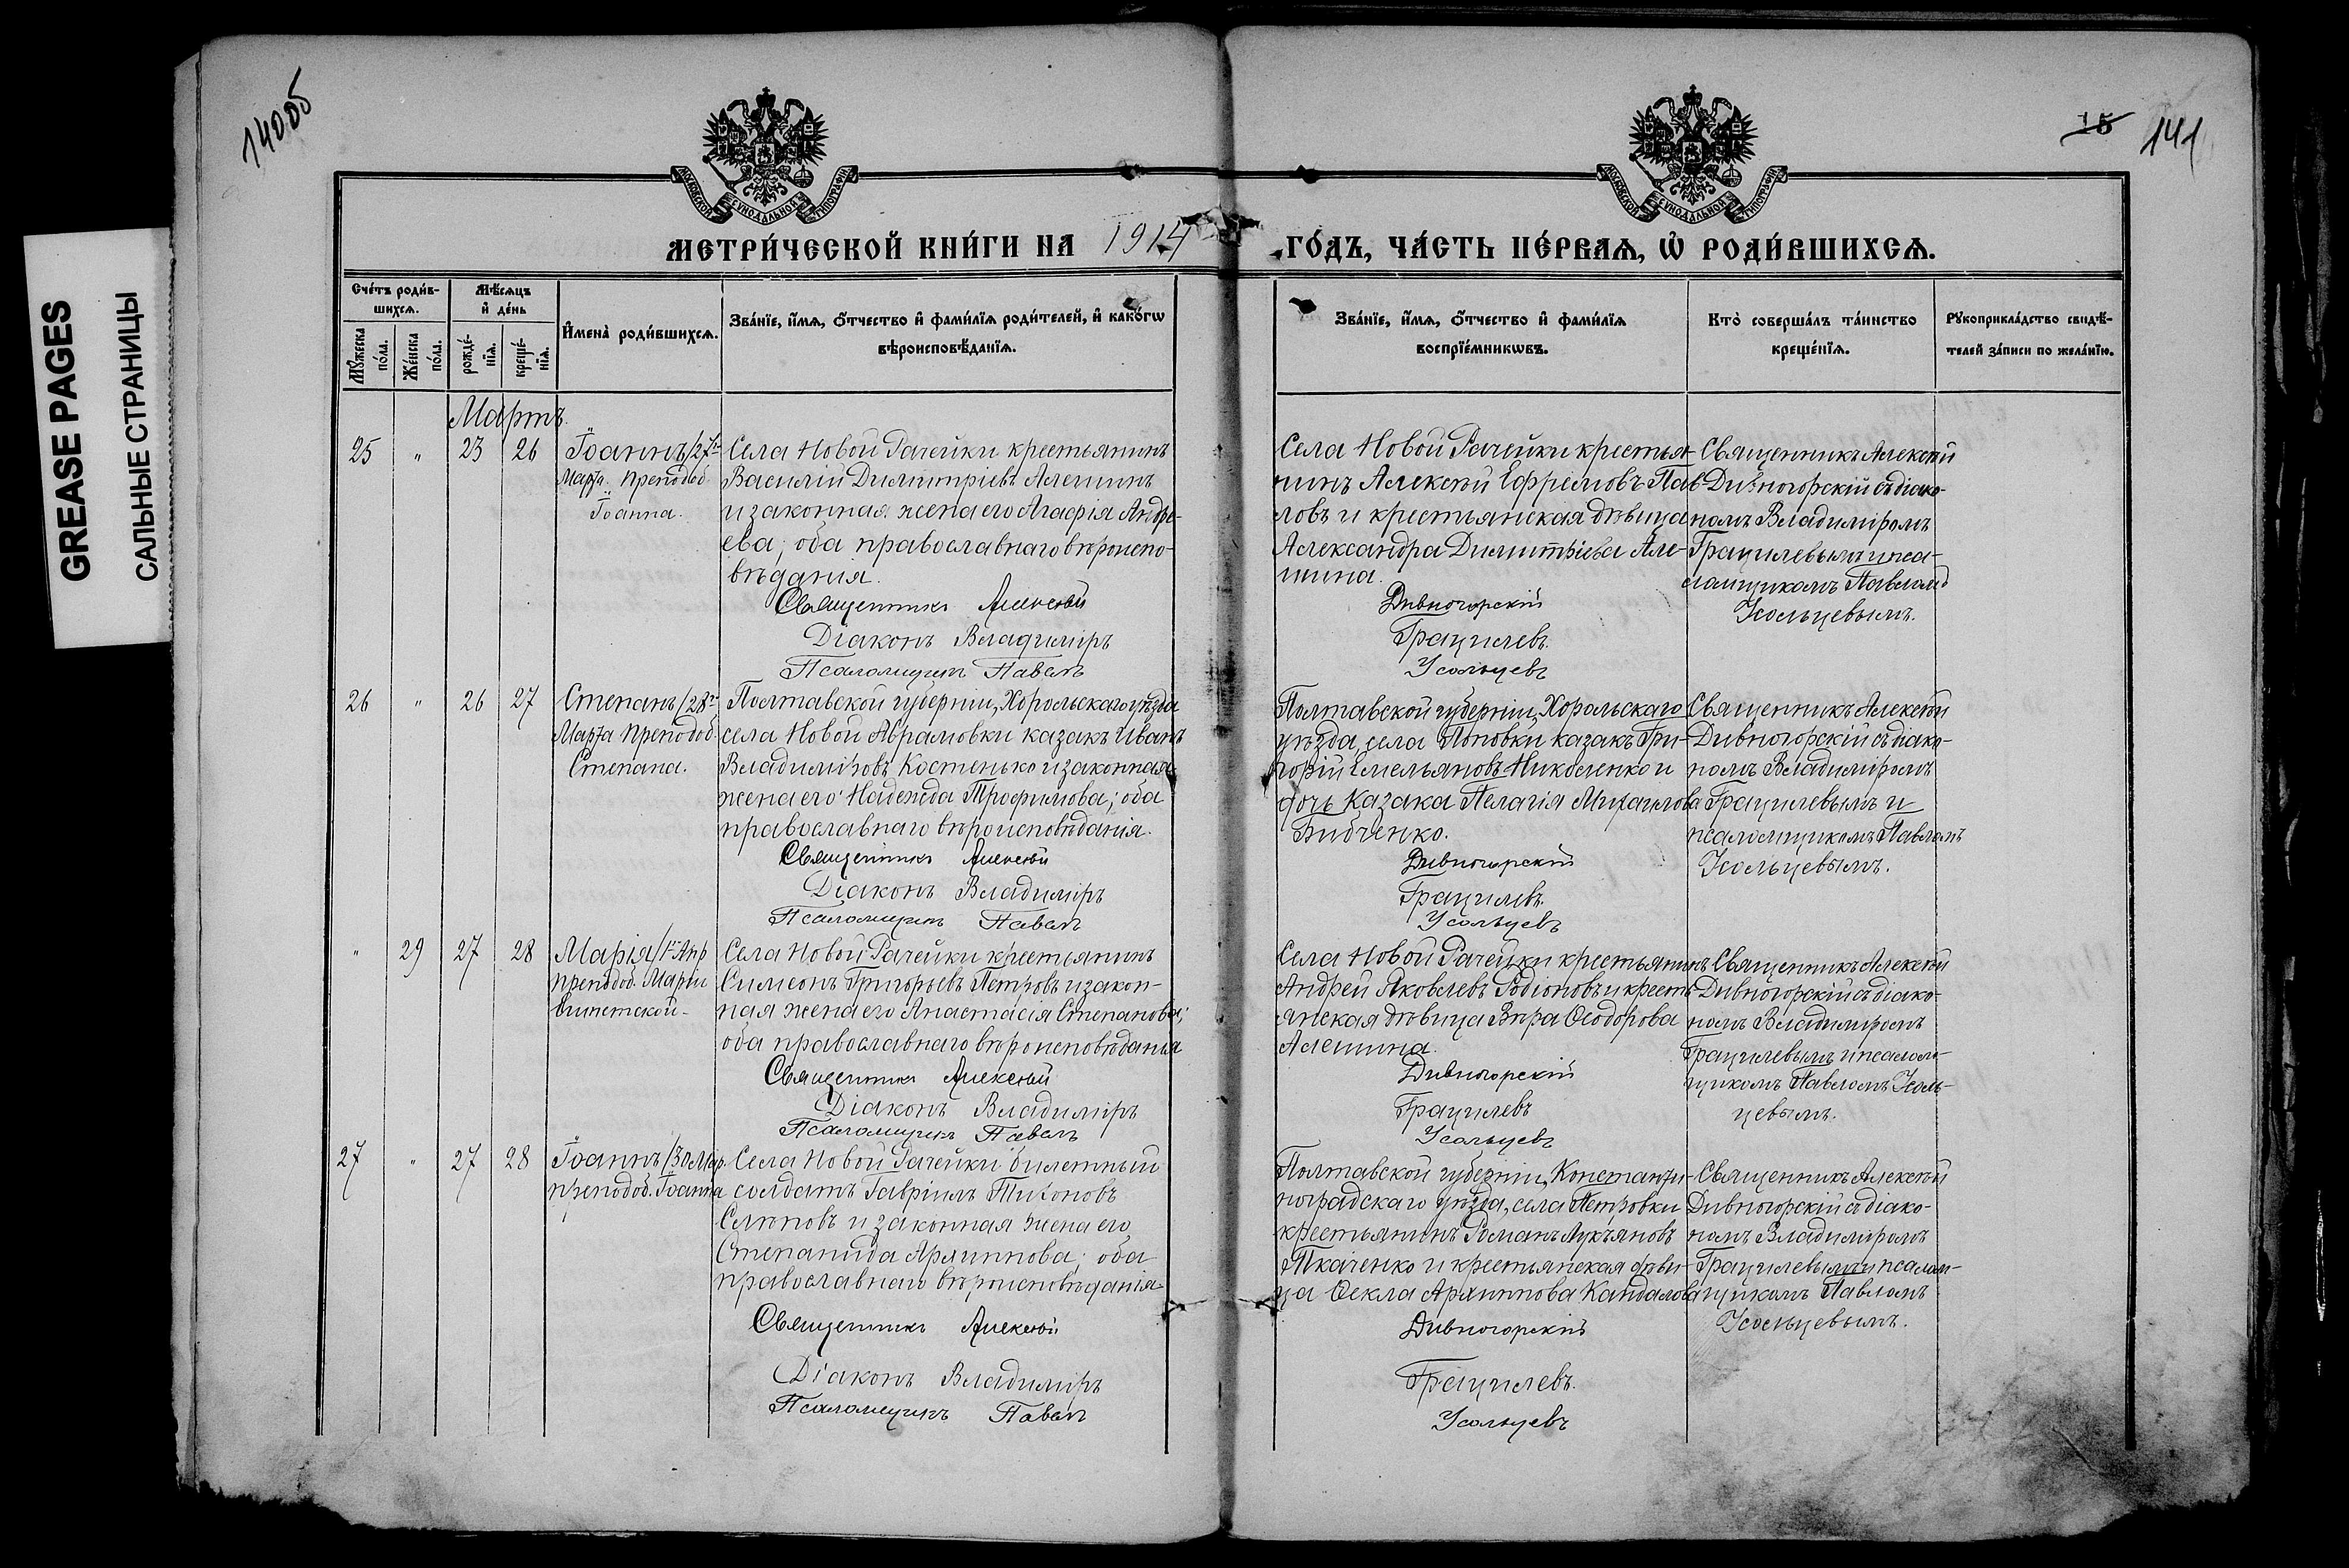 140об
15 141
GREASE PAGES
САЛЬНЫЕ СТРАНИЦЫ
МОСКОВСКОЙ СѴНОДАЛЬНОЙ ТИПОГРАФІИ
МОСКОВСКОЙ СѴНОДАЛЬНОЙ ТИПОГРАФІИ
МЕТРИ́ЧЕСКОЙ КНИ́ГИ НА 1914 ГО́ДЪ, ЧА́СТЬ ПЕ́РВАѦ, Ѡ҆ РОДИ́ВШИХСѦ.
Сче́тъ роди́в-
шихсѧ.
Мꙋ́жеска
по́ла.
Же́нска
по́ла.
Мѣ́сѧцъ
и҆ де́нь
рожде́-
нїѧ.
креще́-
нїѧ.
И҆мена̀ роди́вшихсѧ.
Зва́нїе, и҆́мѧ, ѻ҆́тчество и҆ фами́лїѧ роди́телей, и҆ како́гѡ
вѣроисповѣ́данїѧ.
Зва́нїе, и҆́мѧ, ѻ҆́тчество и҆ фами́лїѧ
воспрїе́мникѡвъ.
Кто̀ соверша́лъ та́инство
креще́нїѧ.
Рꙋкоприкла́дство свидѣ́-
телей за́писи по жела́нїю.
Мартъ
25 " 23 26
Іоаннъ/27го
Марта Преподоб
Іоанна.
Села Новой Рачейки крестьянинъ
Василій Димитріевъ Алешинъ
и законная жена его Агафія Андре-
ева; оба православнаго вѣроиспо-
вѣдания.
Священникъ Алексѣй
Діаконъ Владиміръ
Псаломщикъ Павелъ
Села Новой Рачейки крестья-
нинъ Алексѣй Ефремовъ Пав-
ловъ и крестьянская дѣвица
Александра Димитріева Але-
шина.
Дивногорскій
Грацилевъ.
Усольцевъ
Священникъ Алексѣй
Дивногорскій съ діако-
номъ Владиміромъ
Грацилевымъ и пса-
ломщикомъ Павломъ
Усольцевымъ.
26 " 26 27
Степанъ/28го
Марта Преподоб
Степана.
Полтавской губерніи, Хорольскаго уѣзда
села Новой Аврамовки казакъ Иванъ
Владиміровъ Костенько и законная
жена его Надежда Трофимова; оба
православнаго вѣроисповѣданія.
Священникъ Алексѣй
Діаконъ Владиміръ
Псаломщикъ Павелъ
Полтавской губерніи, Хорольскаго
уѣзда, села Поповки казакъ Гри-
горій Емельяновъ Николенко и
дочь казака Пелагія Михаилова
Бибченко.
Дивногорскій
Грацилевъ.
Усольцевъ
Священникъ Алексѣй
Дивногорскій съ діако-
номъ Владиміромъ
Грацилевымъ и
псаломщикомъ Павломъ
Усольцевымъ.
" 29 27 28
Марія/1го Апр
преподоб. Маріи
Египетской-
Села Новой Рачейки крестьянинъ
Симеонъ Григорьевъ Петровъ и закон-
ная жена его Анастасія Степанова;
оба православнаго вѣроисповѣданья
Священникъ Алексѣй
Діаконъ Владиміръ
Псаломщикъ Павелъ
Села Новой Рачейки крестьянинъ
Андрей Яковлевъ Родіоновъ и кресть-
янская дѣвица Вѣра Ѳеодорова
Алешина.
Дивногорскій
Грацилевъ
Усольцевъ
Священникъ Алексѣй
Дивногорскій съ діако-
номъ Владиміромъ
Грацилевымъ и псалом-
щикомъ Павломъ Усоль-
цевымъ.
27 " 27 28
Іоаннъ/30 Мар.
преподоб. Іоанна
Села Новой Рачейки билетный
солдатъ Гавріилъ Тихоновъ
Слѣповъ и законная жена его
Степанида Архиппова; оба
православнаго вѣроисповѣданія
Священникъ Алексѣй
Діаконъ Владиміръ
Псаломщикъ Павелъ
Полтавской губерніи, Константи-
ноградскаго уѣзда, села Петровки
крестьянинъ Романъ Лукьяновъ
Ткаченко и крестьянская дѣви-
ца Ѳекла Архиппова Кандалова
Дивногорскій
Грацилевъ.
Усольцевъ
Священникъ Алексѣй
Дивногорскій съ діако-
номъ Владиміромъ
Грацилевымъ и псалом-
щикомъ Павломъ
Усольцевымъ.